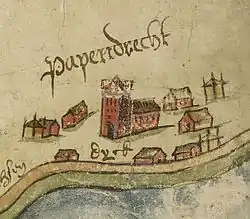 papendrecht
dyck